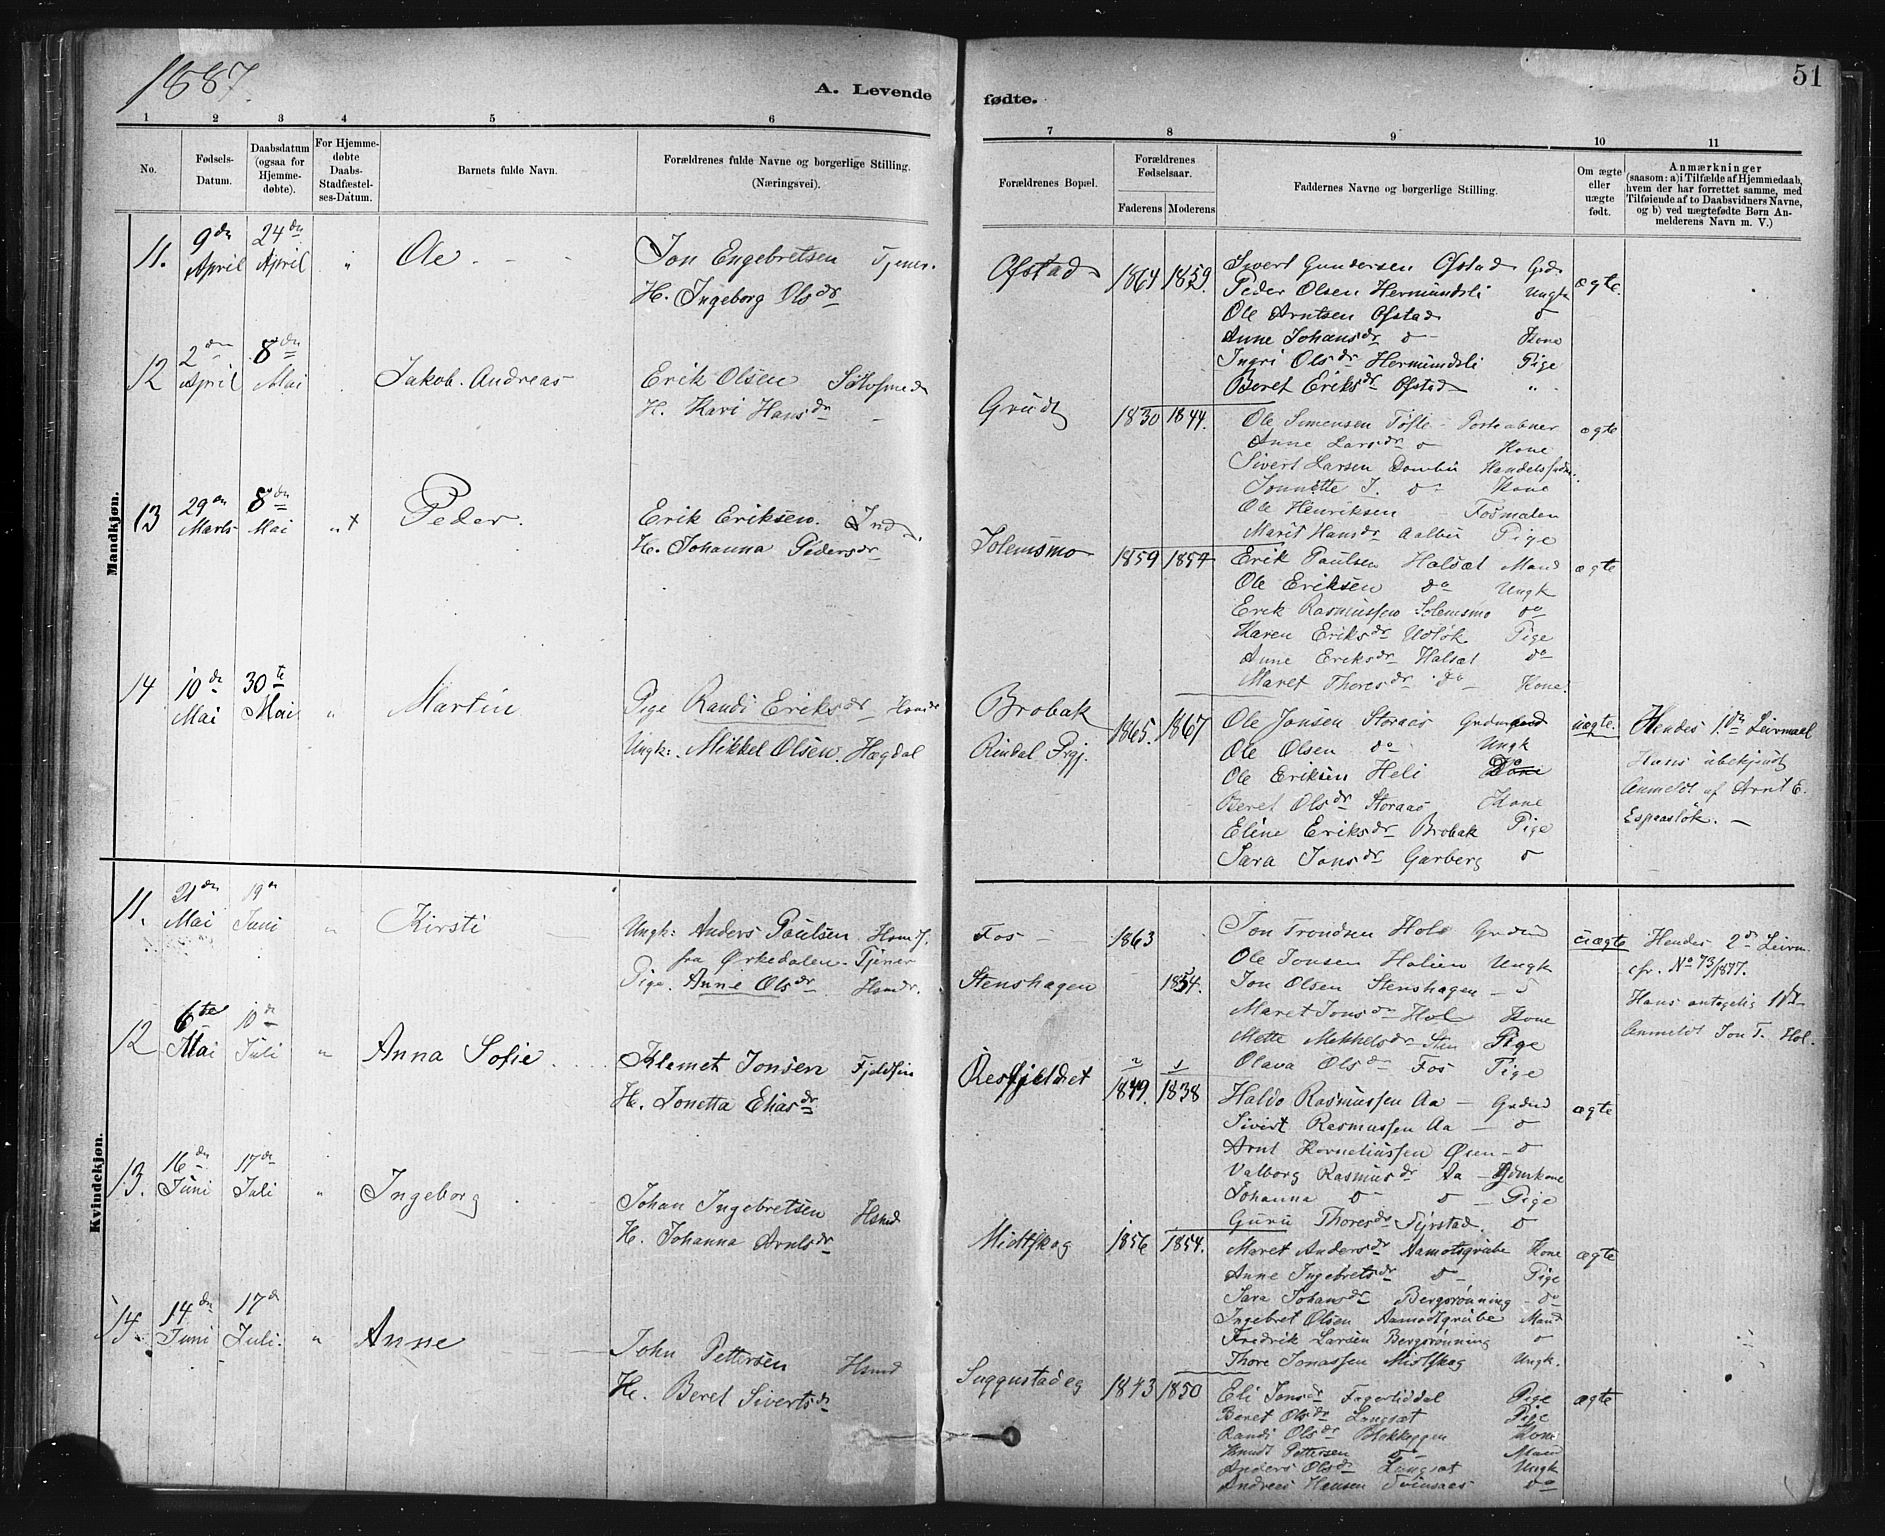 1887.
A. Levende
fødte.
51
1 2 3 4 5 6 7 8 9 10 11
No.
Fødsels-
Datum.
Daabsdatum
(ogsaa for
Hjemme-
døbte).
For Hjemme-
døbte
Daabs-
Stadfæstel-
ses-Datum.
Barnets fulde Navn.
Forældrenes fulde Navne og borgerlige Stilling.
(Næringsvei).
Forældrenes Bopæl.
Forældrenes
Fødselsaar.
Faderens Moderens
Faddernes Navne og borgerlige Stilling.
Om ægte
eller
uægte
født.
Anmærkninger
(saasom: a) i Tilfælde af Hjemmedaab,
hvem der har forrettet samme, med
Tilføiende af to Daabsvidners Navne,
og b) ved uægtefødte Børn An-
melderens Navn m. V.)
Mandkjøn.
11. 9de April 24de April " Ole
Jon Engebretsen Tjener.
H. Ingeborg Olsdr
Ofstad 1864 1859. ægte.
Sivert Gundersen Ofstad Grd.
Peder Olsen Hermundsli Ungk
Ole Arntsen Ofstad do
Anne Johansdr do Kone
Ingri Olsdr Hermundsli Pige
Beret Eriksdr Ofstad "
12 2den April 8de Mai Jakob Andreas
Erik Olsen Sølvsmed
H. Kari Hansdr
Grudt 1830 1844. ægte
Ole Simensen Tøfte Posteabner
Anne Larsdr do Kone
Sivert Larsen Dombu
Jonnette J. do Kone
Ole Henriksen Fosmalen
Marit Hansdr Aalbu Pige
13 29de Marts 8de Mai " x Peder.
Erik Eriksen. Ind.
H. Johanna Pedersdr
Solemsmo 1859 1857 ægte
Erik Paulsen Halsæt Mand
Ole Eriksen do Ungk
Erik Rasmussen Solemsmo do
Karen Eriksdr Udløk Pige
Anne Eriksdr Halsæt do
Maret Thoresdr do Kone.
14 10de Mai 30te Mai " Martin
Pige Randi Eriksdr
Ungk: Mikkel Olsen. Hægdal
Brobak
Rindal Prgj. 1865. 1867 uægte.
Ole Jonsen Storaas
Ole Olsen do Ungk
Ole Eriksen Heli do
Beret Olsdr Storaas Kone
Eline Eriksdr Brobak Pige
Sara Jonsdr Garberg do
Hendes 1ste Leirmaal
Hans ubekjendt
Anmeldt af Arnt E.
Espaasløk. —
Kvindekjøn.
11. 21de Mai 19de Juni " Kirsti
Ungk: Anders Paulsen Hsmd.
fra Ørkedalen. Tjener
Pige. Anne Olsdr Hsmdr.
Fos 1863
Stenshagen 1854. uægte
Jon Trondsen Hole Grdmd
Ole Jonsen Halien Ungk
Jon Olsen Stenshagen do
Maret Jonsdr Hol Kone
Mette Mikkelsdr Sten Pige
Olava Olsdr Fos Pige
Hendes 2det Leirm.
cfr. No 73/1877.
Hans antagelig 1ste
Anmeldt Jon T. Hol.
12 6te Mai 10de Juli " Anna Sofie
Klemet Jonsen Fjeldfin
H. Jonetta Eliasdr
Resfjeldet 1849. 1838 ægte
Haldo Rasmussen Aa Grdmd
Sivert Rasmussen Aa do
Arnt Korneliussen Øien do
Valborg Rasmusdr Aa
Johanna do do Pige
Guru Thoresdr Syrstad. do
13. 16de Juni 17de Juli " Ingeborg
Johan Ingebretsen Hsmd
H. Johanna Arntsdr
Midtskog 1856 1854. ægte
Maret Andersdr Aamotsgrube Kone
Anne Ingebretsdr do Pige
Sara Johansdr Bergsrønning do
Ingebret Olsen Aamodtgrube Mand
Fredrik Larsen Bergsrønning do
Thore Jonassen Midtskog Ungk.
14. 14de Juni 17de Juli. " Anne
John Pettersen Hsmd
H. Beret Sivertsdr
Suggustadeg 1843 1850 ægte
Eli Jonsdr Fagerliddal Pige
Beret Olsdr Langsæt Pige
Randi Olsdr Blokkeggen Kone
Knudt Pettersen do Mand
Anders Olsen Langsæt Ungk
Andreas Hansen Svinsaas do